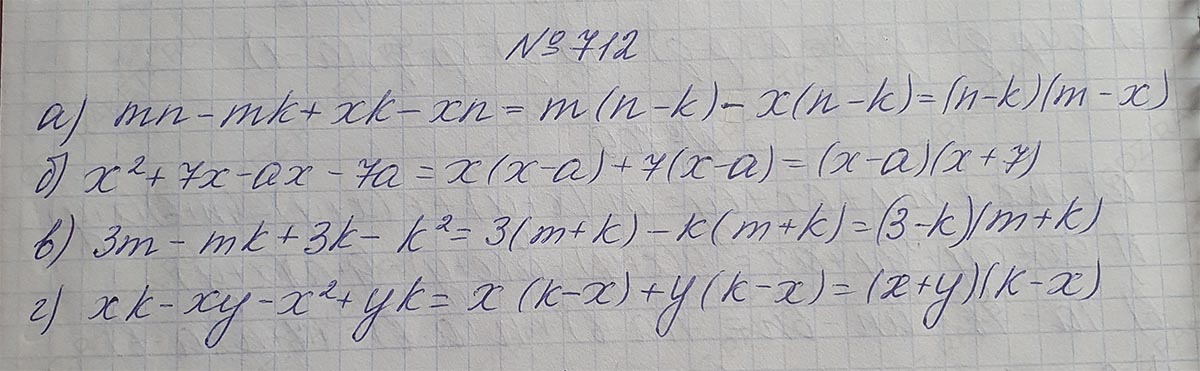 № 712
а) mn - mk + xk - xn = m(n - k) - x(n - k) = (n - k)(m - x)
б) x² + 7x - ax - 7a = x(x - a) + 7(x - a) = (x - a)(x + 7)
в) 3m - mk + 3k - k² = 3(m + k) - k(m + k) = (3 - k)(m + k)
г) xk - xy - x² + yk = x(k - x) + y(k - x) = (x + y)(k - x)